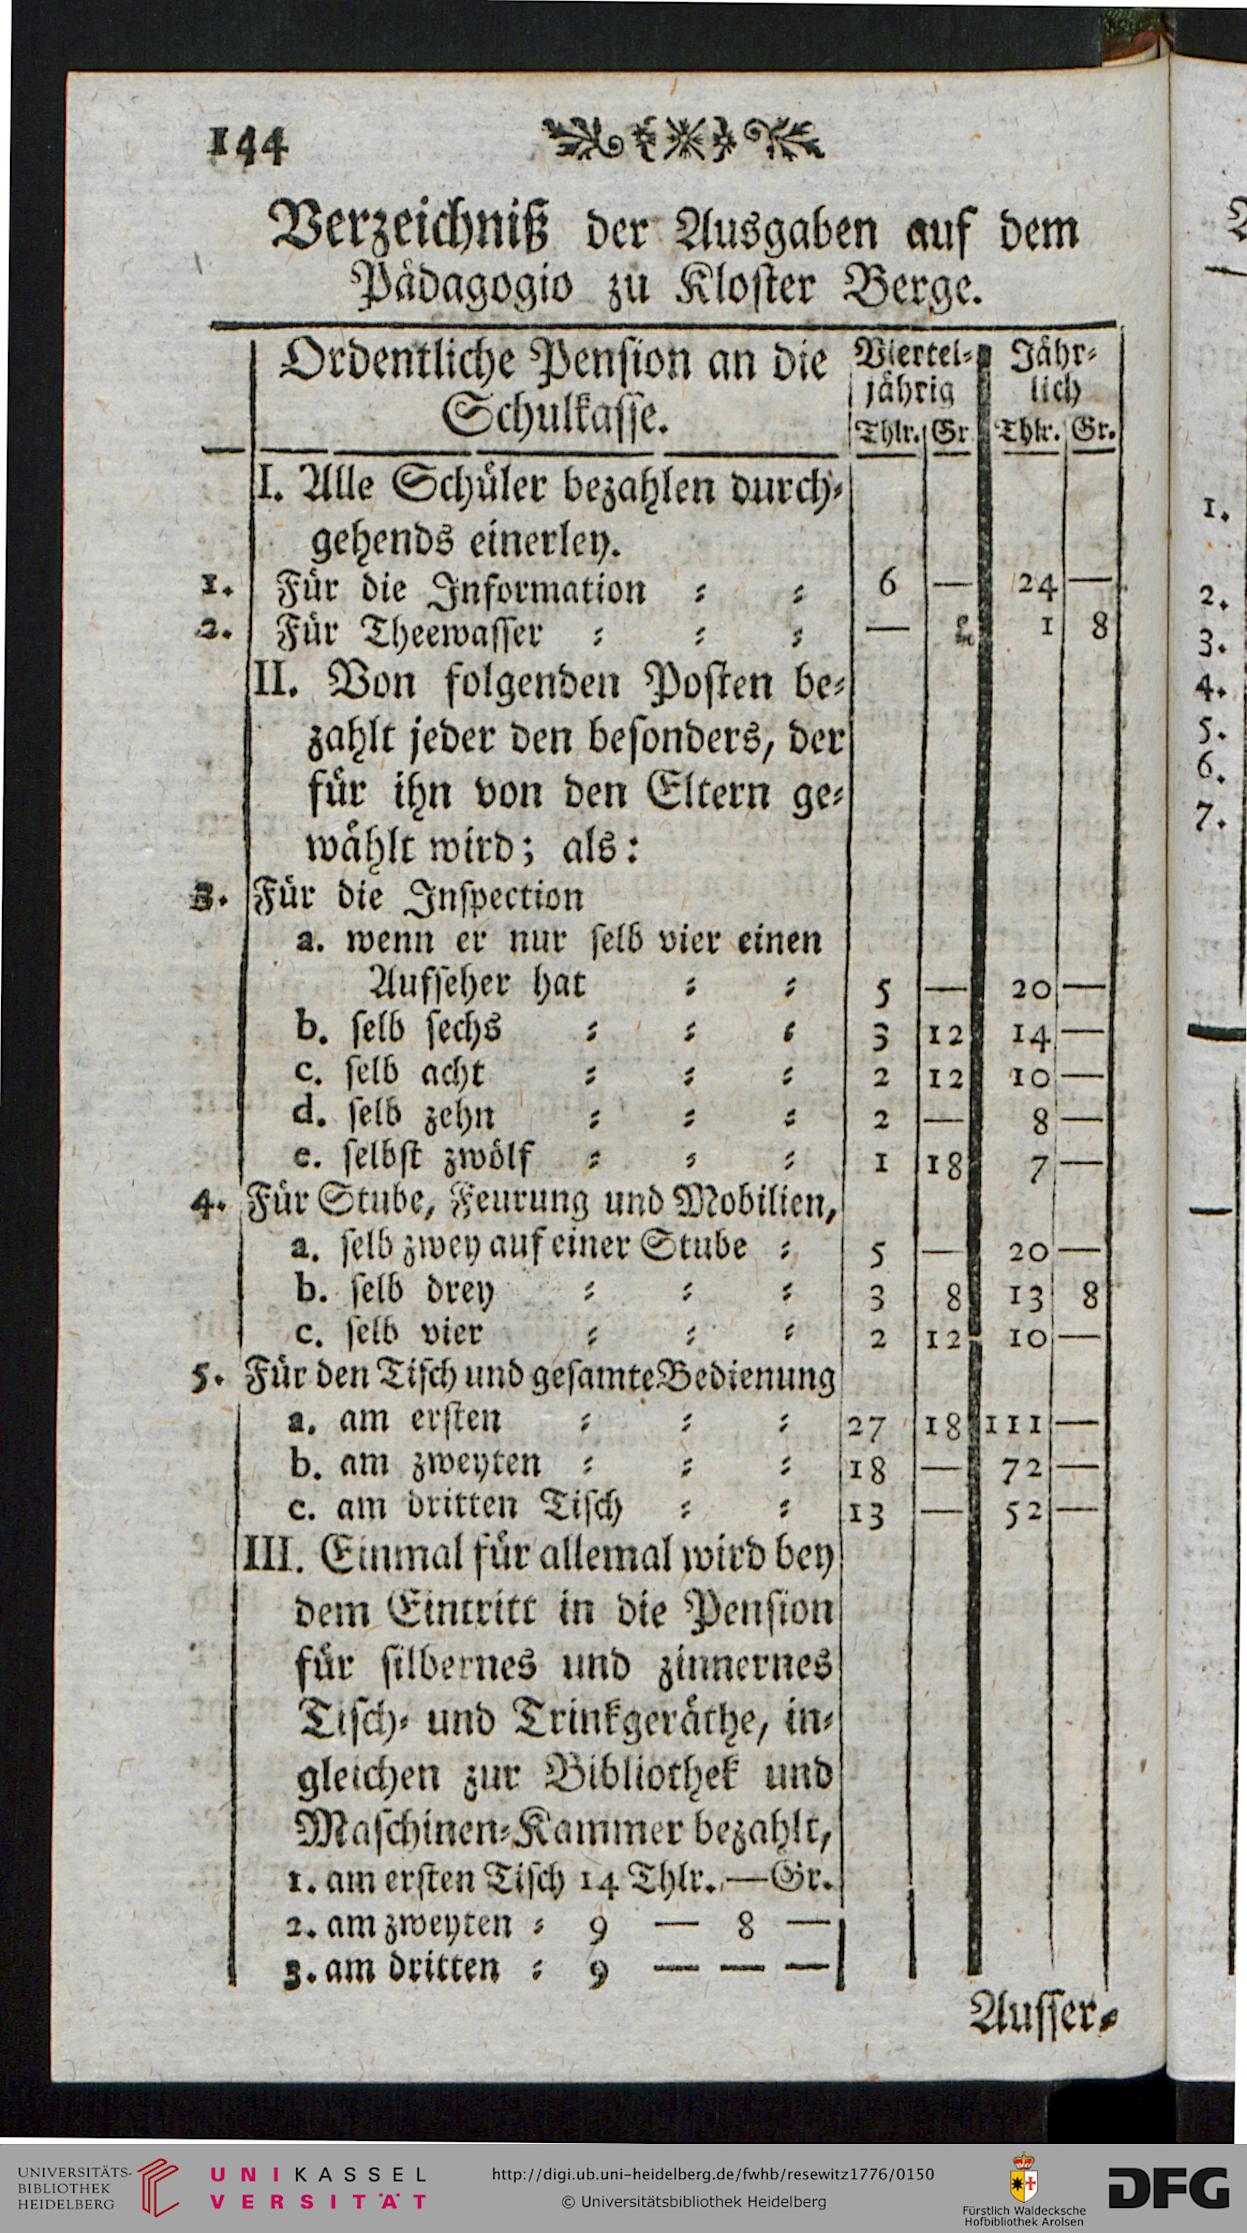 144
Verzeichniß der Ausgaben auf dem
Pådagogio zu Kloster Berge.
Ordentliche Pension an die Schulkasse. | Viertel⸗jährig Thlr. Gr | Jåhr⸗lich Thlr. Gr.
I. Alle Schůler bezahlen durch⸗
gehends einerley.
1. Fůr die Information ⸗ ⸗ 6 — 24 —
2. Fůr Theewasser ⸗ ⸗ ⸗ — 1 8
II. Von folgenden Posten be⸗
zahlt jeder den besonders, der
fůr ihn von den Eltern ge⸗
wåhlt wird; als:
3. Fůr die Inspection
a. wenn er nur selb vier einen
Aufseher hat ⸗ ⸗ 5 — 20 —
b. selb sechs ⸗ ⸗ ⸗ 3 12 14 —
c. selb acht ⸗ ⸗ ⸗ 2 12 10 —
d. selb zehn ⸗ ⸗ ⸗ 2 — 8 —
e. selbst zwölf ⸗ ⸗ ⸗ 1 18 7 —
4. Fůr Stube, Feurung und Mobilien,
a. selb zwey auf einer Stube ⸗ 5 — 20 —
b. selb drey ⸗ ⸗ ⸗ 3 8 13 8
c. selb vier ⸗ ⸗ ⸗ 2 12 10 —
5. Fůr den Tisch und gesamte Bedienung
a. am ersten ⸗ ⸗ ⸗ 27 18 111 —
b. am zweyten ⸗ ⸗ ⸗ 18 — 72 —
c. am dritten Tisch ⸗ ⸗ 13 — 52 —
III. Einmal fůr allemal wird bey
dem Eintritt in die Pension
fůr silbernes und zinnernes
Tisch⸗ und Trinkgeråthe, in⸗
gleichen zur Bibliothek und
Maschinen⸗Kammer bezahlt,
1. am ersten Tisch 14 Thlr. — Gr.
2. am zweyten ⸗ 9 — 8 —
3. am dritten ⸗ 9 — — —
Ausser⸗
1.
2.
3.
4.
5.
6.
7.
UNIVERSITÄTS-
BIBLIOTHEK
HEIDELBERG
UNIKASSEL
VERSITÄT
http://digi.ub.uni-heidelberg.de/fwhb/resewitz1776/0150
© Universitätsbibliothek Heidelberg
Fürstlich Waldecksche
Hofbibliothek Arolsen
DFG